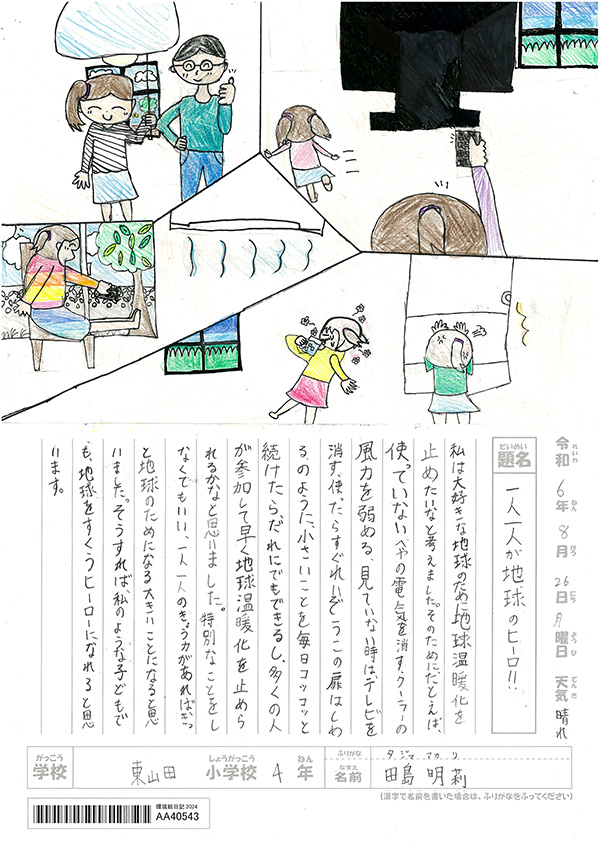 令和6年8月26日月曜日 天気 晴れ
れいわ ねん がつ にち ようび てんき
だいめい
題名
一人一人が地球のヒーロ!!
私は大好きな地球のために地球温暖化を
止めたいなと考えました。そのためにたとえば、
使っていないへやの電気を消す、クーラーの
風力を弱める、見ていない時はテレビを
消す、使ったらすぐれいぞうこの扉はしめ
るのように、小さいことを毎日コツコツと
続けたら、だれにでもできるし、多くの人
が参加して早く地球温暖化を止めら
れるかなと思いました。特別なことをし
なくてもいい、一人一人のきょう力があればきっ
と地球のためになる大きいことになると思
いました。そうすれば、私のような子どもで
も、地球をすくうヒーローになれると思
います。
がっこう しょうがっこう ねん ふりがな タジマ アカリ
学校 東山田 小学校 4年 なまえ 名前 田島 明莉
(漢字で名前を書いた場合は、ふりがなをふってください)
環境絵日記 2024
AA40543